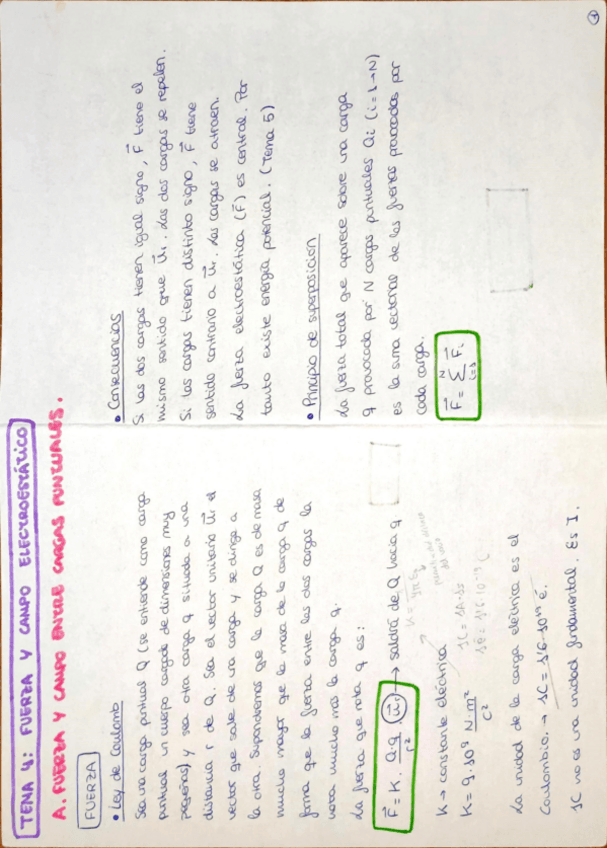 TEMA 4: FUERZA Y CAMPO ELECTROESTÁTICO
A. FUERZA Y CAMPO ENTRE CARGAS PUNTUALES.
FUERZA
• Ley de Coulomb
Sea una carga puntual Q (se entiende como carga
puntual un cuerpo cargado de dimensiones muy
pequeñas) y sea otra carga q situada a una
distancia r de Q. Sea el vector unitario u⃗r el
vector que sale de una carga y se dirige a
la otra. Supondremos que la carga Q es de masa
mucho mayor que la masa de la carga q de
forma que la fuerza entre las dos cargas la
nota mucho más la carga q.
La fuerza que nota q es:
F⃗ = K · Q·q / r² (u⃗r) → saldrá de Q hacia q
K → constante eléctrica → K = 1 / 4πε₀
K = 9·10⁹ N·m² / C²
1C = 1A·1s
La unidad de la carga eléctrica es el
Coulombio. → 1C = 1'6·10¹⁹ e⁻.
1C no es una unidad fundamental. Es I.
• Consecuencias
Si las dos cargas tienen igual signo, F⃗ tiene el
mismo sentido que u⃗r. Las dos cargas se repelen.
Si las cargas tienen distinto signo, F⃗ tiene
sentido contrario a u⃗r. Las cargas se atraen.
La fuerza electroestática (F⃗) es central. Por
tanto existe energía potencial. (Tema 5)
• Principio de superposición
La fuerza total que aparece sobre una carga
q provocada por N cargas puntuales Qi (i=1→N)
es la suma vectorial de las fuerzas provocadas por
cada carga.
F⃗ = Σ F⃗i
N
i=1
1